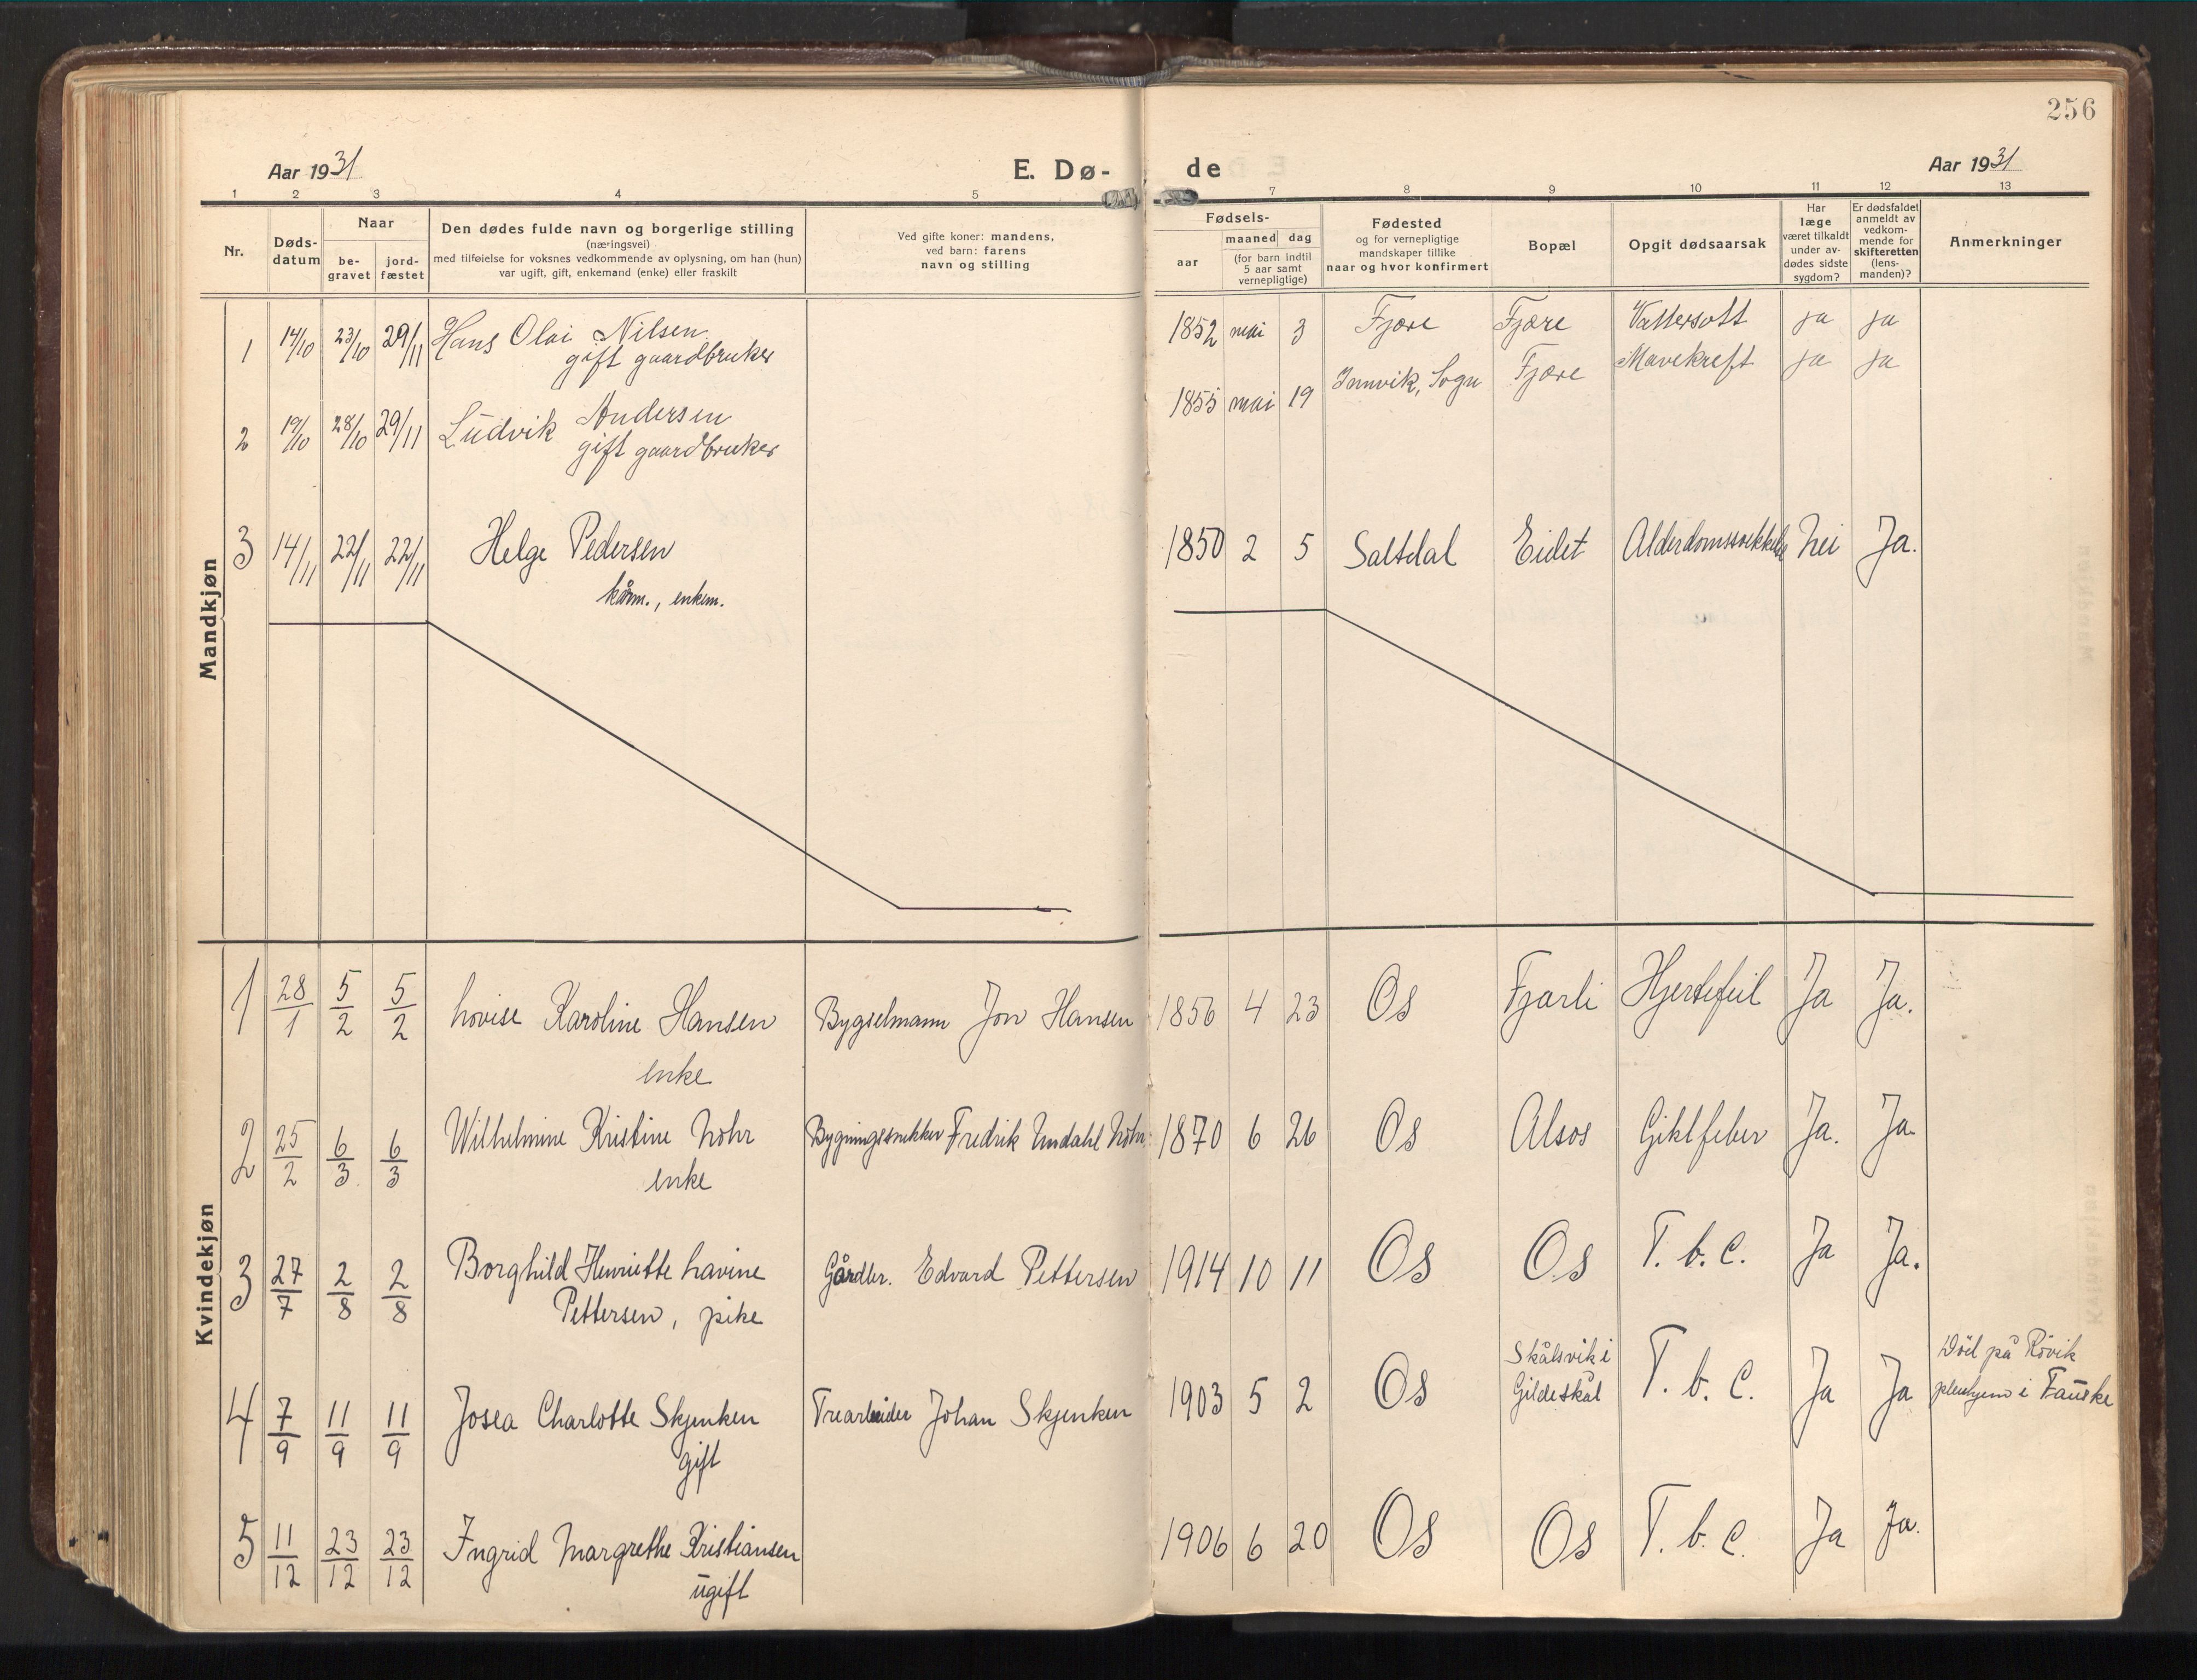 256
Aar 1931
E. Dø-
de
Aar 1931
1 2 3 4 5 7 8 9 10 11 12 13
Nr.
Døds-
datum
Naar
be-
gravet
jord-
fæstet
Den dødes fulde navn og borgerlige stilling
(næringsvei)
med tilføielse for voksnes vedkommende av oplysning, om han (hun)
var ugift, gift, enkemand (enke) eller fraskilt
Ved gifte koner: mandens,
ved barn: farens
navn og stilling
Fødsels-
aar
maaned dag
(for barn indtil
5 aar samt
vernepligtige)
Fødested
og for vernepligtige
mandskaper tillike
naar og hvor konfirmert
Bopæl
Opgit dødsaarsak
Har
læge
været tilkaldt
under av-
dødes sidste
sygdom?
Er dødsfaldet
anmeldt av
vedkom-
mende for
skifteretten
(lens-
manden)?
Anmerkninger
Mandkjøn
1 14/10 23/10 29/11 Hans Olai Nilsen
gift gaardbruker
1852 mai 3 Fjære Fjære Vattersott ja ja
2 19/10 28/10 29/11 Ludvik Andersen
gift gaardbruker
1855 mai 19 Innvik, Sogn Fjære Mavekreft ja ja
3 14/11 22/11 22/11 Helge Pedersen
kårm., enkem.
1850 2 5 Saltdal Eidet Alderdomssvekkelse Nei Ja.
Kvindekjøn
1 28/1 5/2 5/2 Lovise Karoline Hansen Bygselmann Jon Hansen 1856 4 23 Os Fjærli Hjertefeil Ja Ja.
enke
2 25/2 6/3 6/3 Wilhelmine Kristine Nohr Bygningssnekker Fredrik Nohr 1870 6 26 Os Alsos Giktfeber Ja. Ja
enke
3 27/7 2/8 2/8 Borghild Henriette Lavine Gårdbr. Edvard Pettersen 1914 10 11 Os Os T. b. C. Ja Ja.
Pettersen, pike
4 7/9 11/9 11/9 Josea Charlotte Skjenken Trearbeider Johan Skjenken 1903 5 2 Os Skålsvik i
Gildeskål T. b. C. Ja Ja Død på Rövik
pleiehjem i Fauske
gift
5 11/12 23/12 23/12 Ingrid Margrethe Kristiansen 1906 6 20 Os Os T. b. C. Ja Ja.
ugift